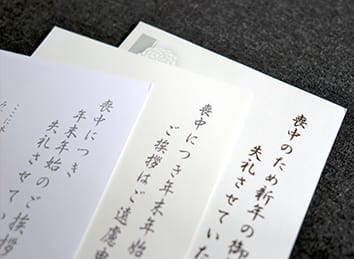 喪中のため新年の御
失礼させていた
喪中につき年末年始
ご挨拶はご遠慮申
喪中につき
年末年始のご挨拶
失礼させて